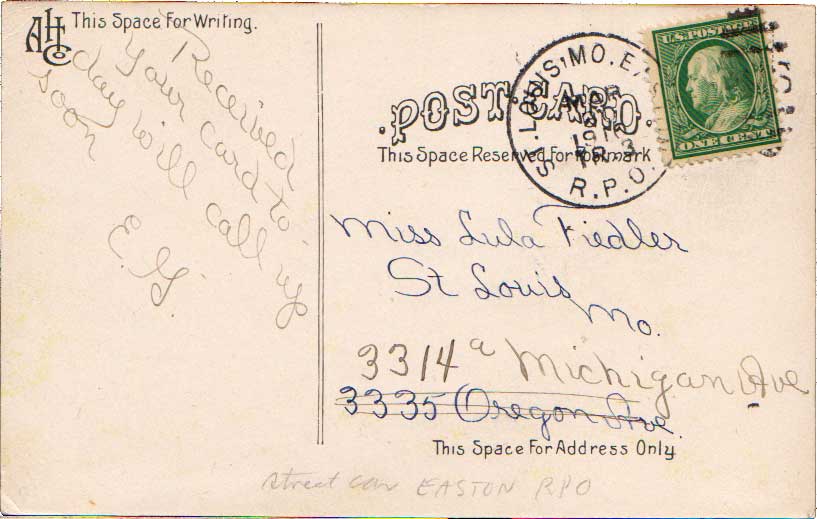 AHCo
This Space For Writing.
Received
your card to
day will call up
soon
E. G.
POST CARD.
This Space Reserved for Postmark
ST. LOUIS, MO. EAS
MAR
1912
TR. 3
R.P.O.
U.S. POSTAGE
ONE CENT
Miss Lula Fiedler
St Louis
Mo.
3314a Michigan Ave
3335 Oregon Ave.
This Space For Address Only
street car EASTON RPO